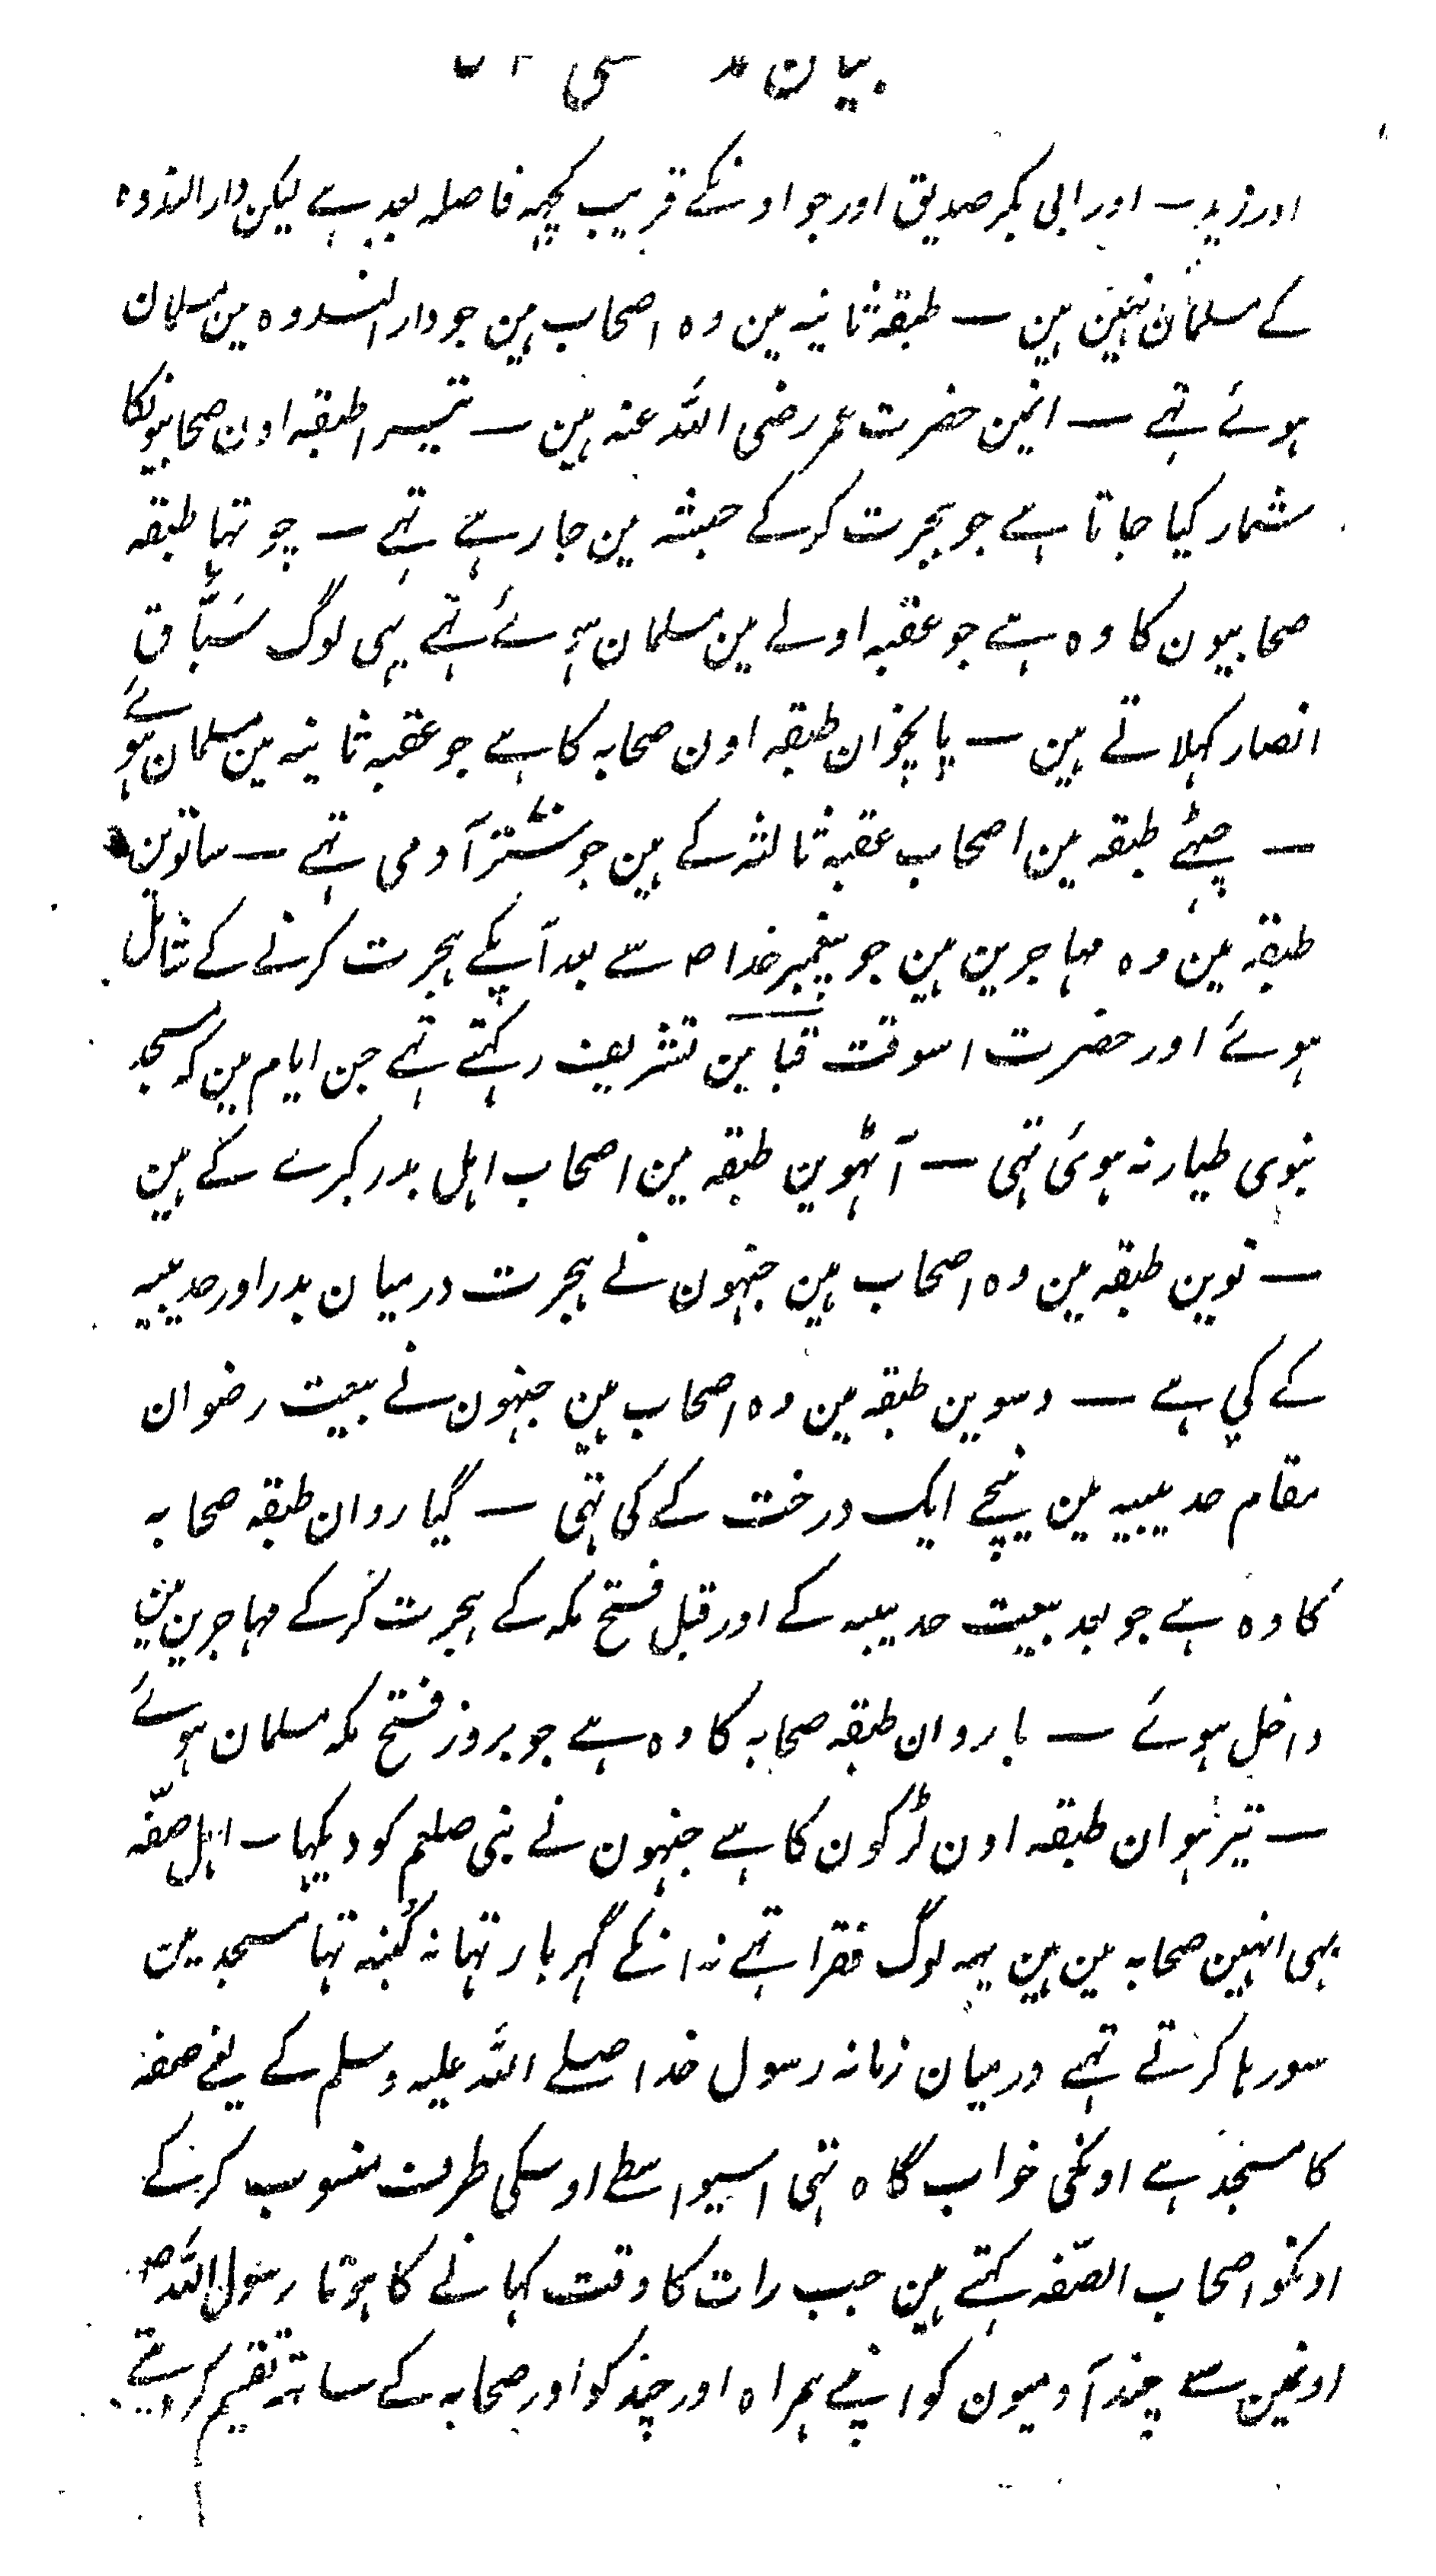 بیان
اور زید ــ اور ابی بکر صدیق اور جو اونکے قریب کچھہ فاصلہ بعید ہے لیکن دار الندوہ
کے مسلمان نہین ہین ــ طبقہ ثانیہ مین وہ اصحاب ہین جو دار الندوہ مین مسلمان
ہوئے تہے ــ انمین حضرت عمر رضی اللہ عنہ ہین ــ تیسرا طبقہ اون صحابیونکا
شمار کیا جاتا ہے جو ہجرت کرکے حبشہ مین جا رہے تہے ــ چوتہا طبقہ
صحابیون کا وہ ہے جو عقبہ اولے مین مسلمان ہوئے تہے یہی لوگ سَبَّاق
انصار کہلاتے ہین ــ پانچوان طبقہ اون صحابہ کا ہے جو عقبہ ثانیہ مین مسلمان ہوئے
ــ چہٹے طبقہ مین اصحاب عقبہ ثالثہ کے ہین جو ستر آدمی تہے ــ ساتوین
طبقہ مین وہ مہاجرین ہین جو پیغمبر خدا ص سے بعد آپکے ہجرت کرنے کے شامل
ہوئے اور حضرت اسوقت قبا مین تشریف رکہتے تہے جن ایام مین کہ مسجد
نبوی طیار نہ ہوئی تہی ــ آٹہوین طبقہ مین اصحاب اہل بدر کبرے کے ہین
ــ نوین طبقہ مین وہ اصحاب ہین جنہون نے ہجرت درمیان بدر اور حدیبیہ
کے کی ہے ــ دسوین طبقہ مین وہ اصحاب ہین جنہون نے بیعت رضوان
مقام حدیبیہ مین نیچے ایک درخت کے کی تہی ــ گیاروان طبقہ صحابہ
کا وہ ہے جو بعد بیعت حدیبیہ کے اور قبل فتح مکہ کے ہجرت کرکے مہاجرین مین
داخل ہوئے ــ باروان طبقہ صحابہ کا وہ ہے جو بروز فتح مکہ مسلمان ہوئے
ــ تیرہوان طبقہ اون لڑکون کا ہے جنہون نے نبی صلعم کو دیکہا ــ اہل صفّہ
بہی انہین صحابہ مین ہین یہہ لوگ فقرا تہے نہ انکے گہر بار تہا نہ کُنبہ تہا مسجد مین
سو رہا کرتے تہے درمیان زمانہ رسول خدا صلے اللہ علیہ وسلم کے یعنے صفہ
کا مسجد ہے اونکی خواب گاہ تہی اسیواسطے اوسکی طرف منسوب کرکے
اونکو اصحاب الصّفہ کہتے ہین جب رات کا وقت کہانے کا ہوتا رسول اللہ ص
اونمین سے چند آدمیون کو اپنے ہمراہ اور چند کو اور صحابہ کے ساتہ تقسیم کردیتے